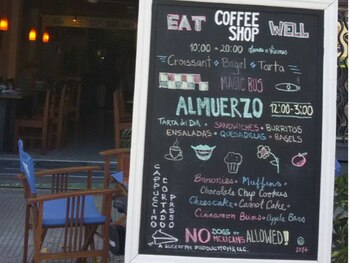 EAT COFFEE SHOP WELL
10:00 - 20:00
Croissant Bagel Tarta
MAGIC BUS
ALMUERZO 12:00-3:00
TARTA DEL DIA SANDWICHES BURRITOS
ENSALADAS QUESADILLAS BAGELS
Brownies Muffins
Chocolate Chip Cookies
Cheesecake Carrot Cake
Cinnamon Buns Apple
CAPPUCCINO
CORTADO
NO DOGS OR MEXICANS ALLOWED!